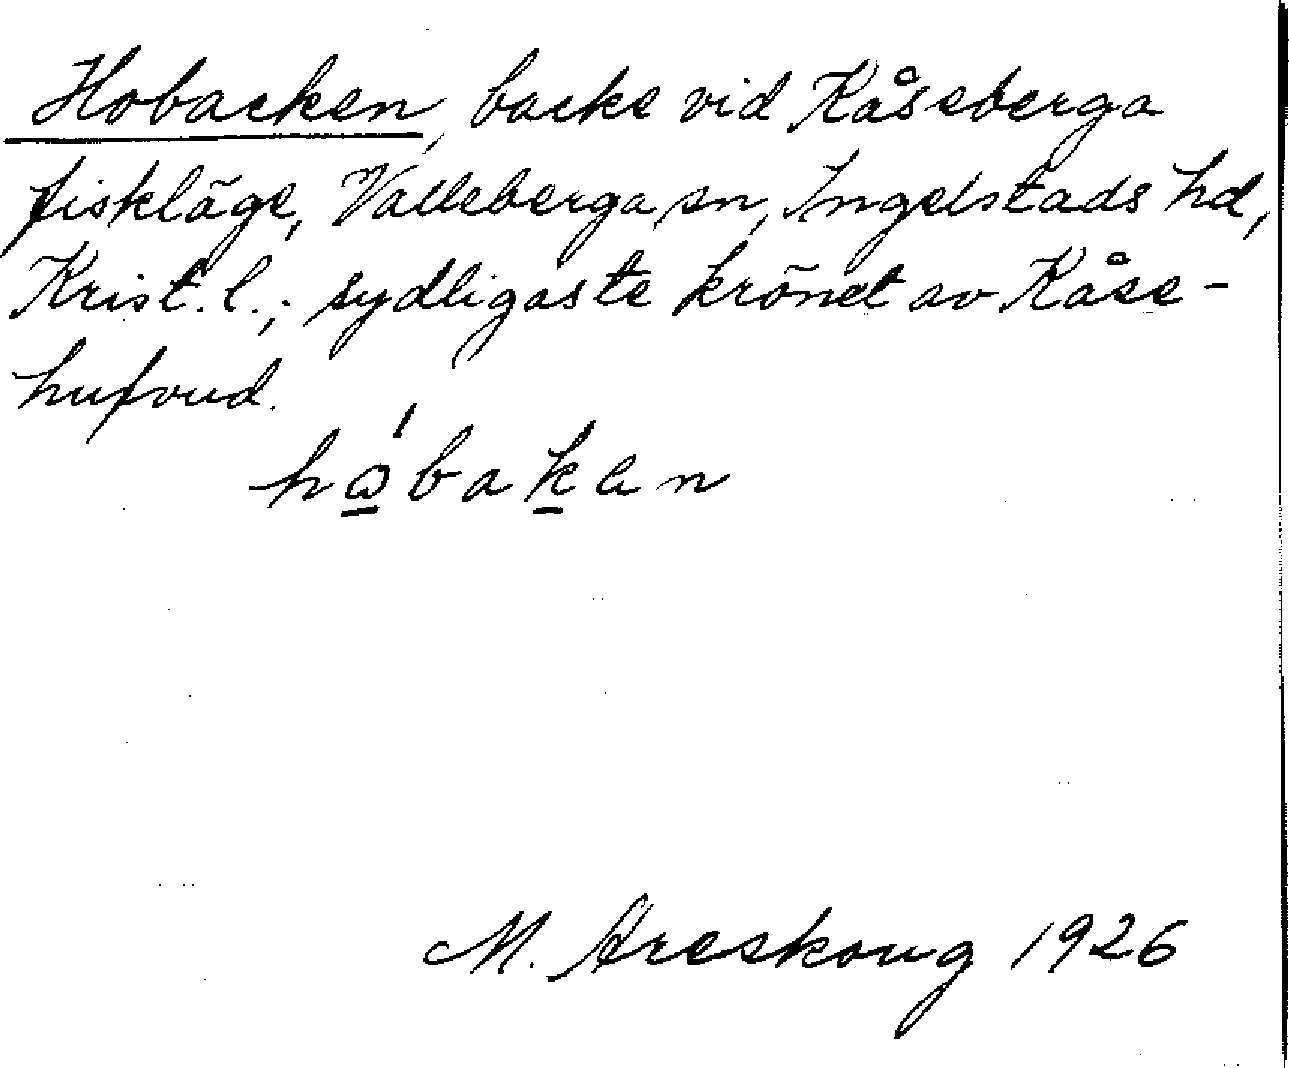 Hobacken, backe vid Kåseberga
fiskläge, Valleberga sn, Ingelstads hd,
Krist. l.; sydligaste krönet av Kåse-
hufvud.
M. Areskoug 1926